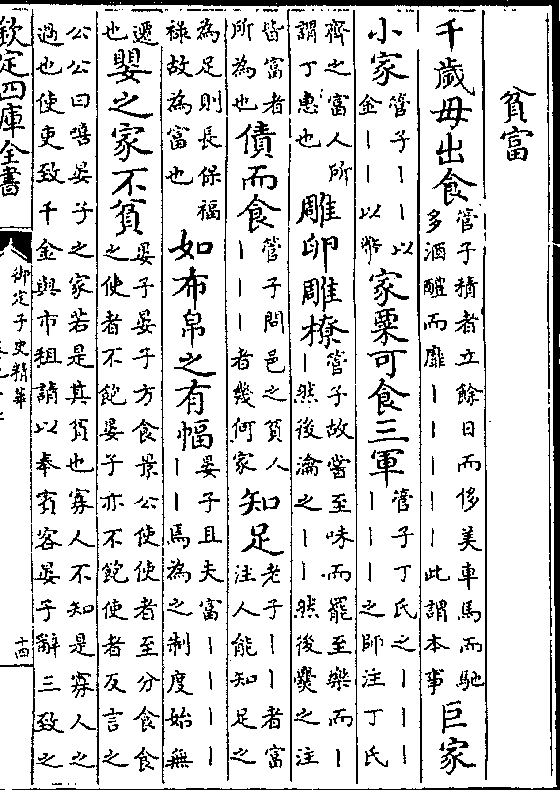 貧富
千歲毋出食管子積者立餘日而侈美車馬而馳多酒醴而靡丨丨丨丨丨此謂本事巨家
小家管子丨丨以金丨丨以幣家粟可食三軍管子丁氏之丨丨丨丨丨丨之師注丁氏
齊之富人所謂丁惠也雕卵雕橑管子故嘗至味而罷至樂而丨丨然後瀹之丨丨然後爨之注
皆富者所為也債而食管子問邑之貧人丨丨丨者幾何家知足老子丨丨者富注人能知足之
為足則長保福祿故為富也如布帛之有幅晏子且夫富丨丨丨丨丨丨焉為之制度始無
遷也嬰之家不貧晏子晏子方食景公使使者至分食食之使者不飽晏子亦不飽使者反言之
公公曰嘻晏子之家若是其貧也寡人不知是寡人之過也使吏致千金與市租請以奉賓客晏子辭三致之
欽定四庫全書
御定子史精華
十四